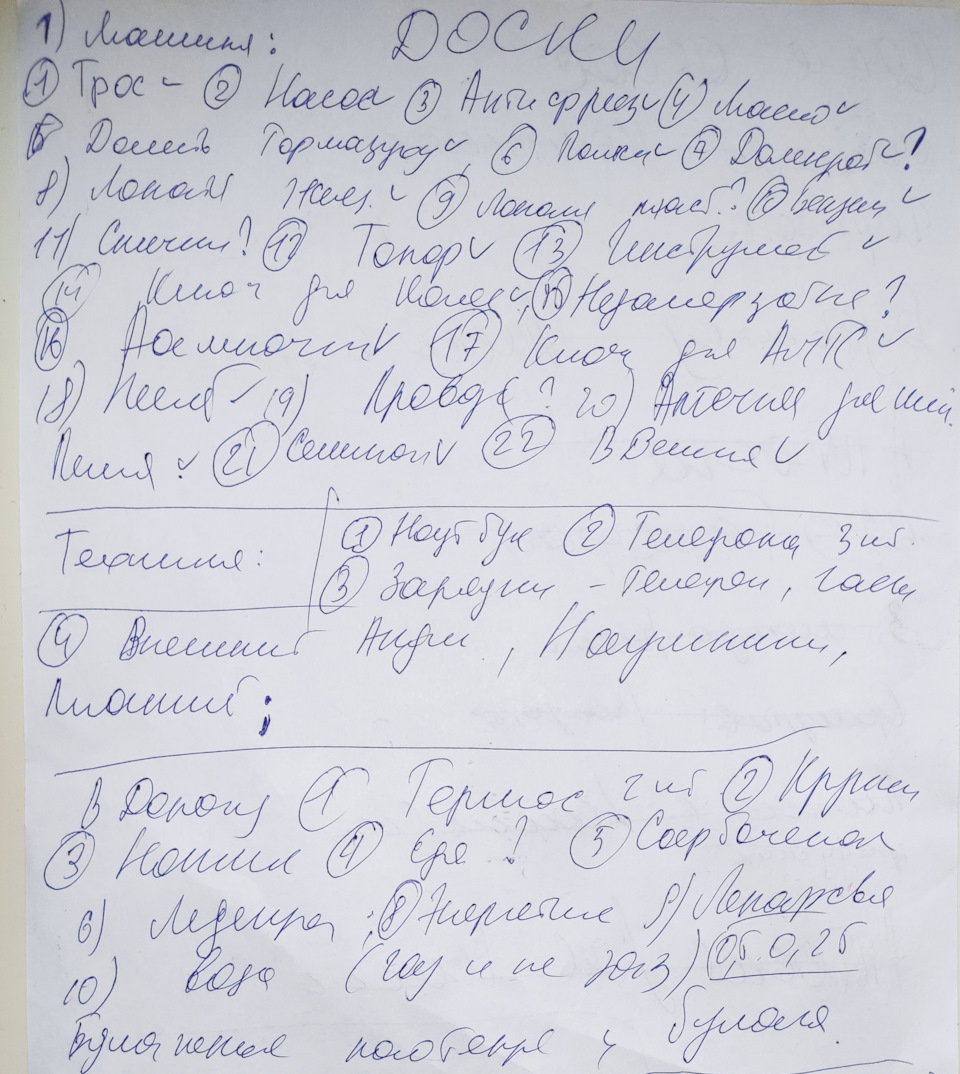 1) Машина: ДОСКИ
1 Трос ✓ 2 Насос ✓ 3 Антифриз ✓ 4 Масло ✓
5 Долить Тормазуху ✓, 6 ✓ 7 Домкрат ✓?
8) Лопата Желез. ✓ 9 Лопата пласт.? 10 Бензин ✓
11) Спички? 12 Топор ✓ 13 Инструмент ✓
14 Ключ для Колес ✓, 15 Незамерзайка?
16 Лампочки ✓ 17 Ключ для АКПП ✓
18) ✓ 19) Провода? 20) Аптечка для
✓ 21 ✓ 22 ✓
Техника: 1 Ноутбук 2 Телефона 3 шт.
3 Зарядки – Телефон, часы
4 Внешний Акум, Наушники,
Планшет;
В Дорогу 1 Термос 2 шт 2 Кружки
3 4 Еда? 5
6) Леденцы; 8 Энергетик 9)
10) вода (газ и не газ) 0,5. 0,25
Бумажные полотенце, бумага